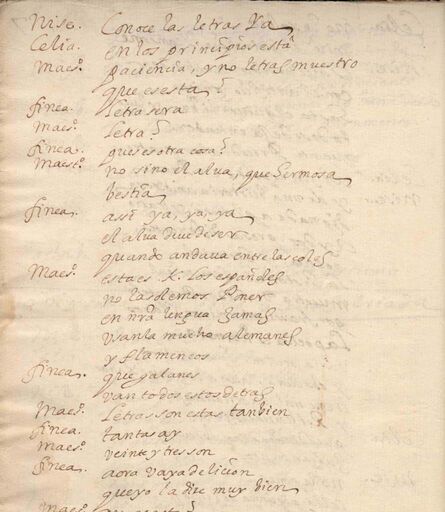 Nise. Conoce las letras ya
Celia. en los principios está
Maesº. paciencia, y no letras muestro
que es esta?
finea. Letra sera
Maesº. Letra?
finea. ques es otra cosa?
Maestº. no sino el alva, que hermosa
bestia
finea. assi ya, ya, ya
el alva dive de ser
quando andava entre las coles
Maesº. esta es K. los españoles
no la solemos Poner
en nrã lengua Jamas
usanla mucho alemanes
y flamencos
finea. que galanes
van todos estos detras
Maesº. Letras son estas tanbien
finea. tantas ay
Maesº. veinte y tres son
finea. aora vaya de licion
que yo la dire muy bien
Maesº.